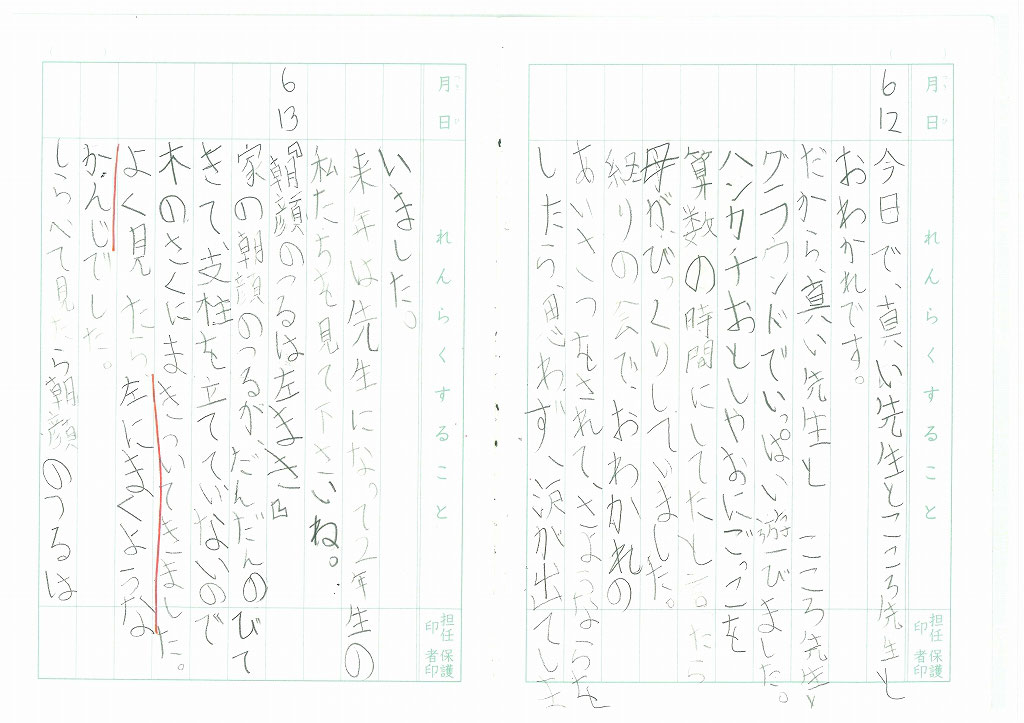 月 日
れんらくすること
担任印 保護者印
6 12
今日で、真い先生とこころ先生と
おわかれです。
だから、真い先生と こころ先生と
グラウンドでいっぱい遊びました。
ハンカチおとしやおにごっこを
算数の時間にしてたと言ったら
母が、びっくりしていました。
経りの会で、おわかれの
あいさつをされて、さようならを
したら、思わず、涙が出てしま
月 日
れんらくすること
担任印 保護者印
いました。
来年は先生になって2年生の
私たちを見て下さいね。
6 13
『朝顔のつるは左まき』
家の朝顔のつるが、だんだんのびて
きて、支柱を立てていないので
木のさくにまきついてきました。
よく見たら、左にまくような
かんじでした。
しらべて見たら朝顔のつるは